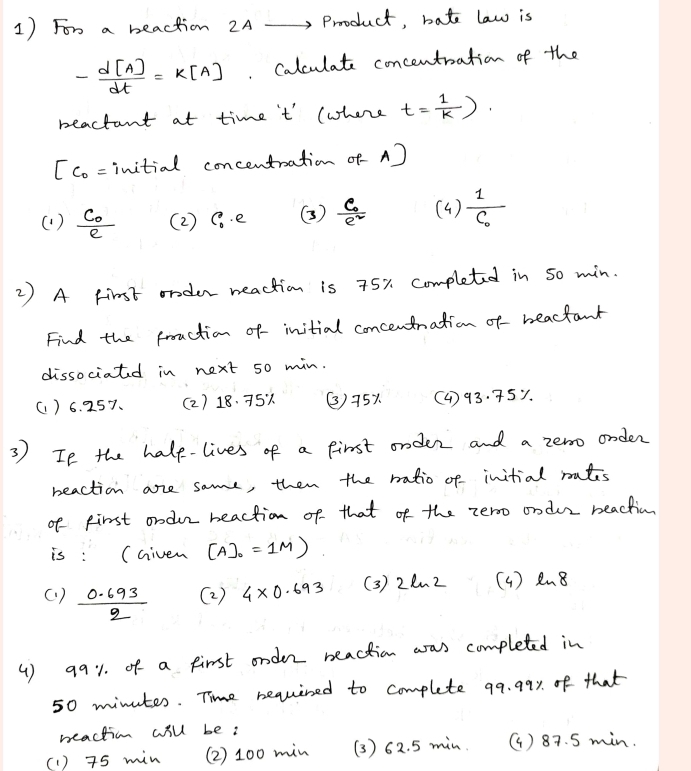 1) For a reaction 2A ⟶ Product, rate law is
- d[A]/dt = K[A] . Calculate concentration of the
reactant at time 't' (where t = 1/K).
[C₀ = initial concentration of A]
(1) C₀/e (2) C₀.e (3) C₀/e² (4) 1/C₀
2) A first order reaction is 75% completed in 50 min.
Find the fraction of initial concentration of reactant
dissociated in next 50 min.
(1) 6.25% (2) 18.75% (3) 75% (4) 93.75%.
3) If the half-lives of a first order and a zero order
reaction are same, then the ratio of initial rates
of first order reaction of that of the zero order reaction
is : (Given [A]₀ = 1M)
(1) 0.693/2 (2) 4×0.693 (3) 2 ln 2 (4) ln 8
4) 99% of a first order reaction was completed in
50 minutes. Time required to complete 99.99% of that
reaction will be :
(1) 75 min (2) 100 min (3) 62.5 min. (4) 87.5 min.